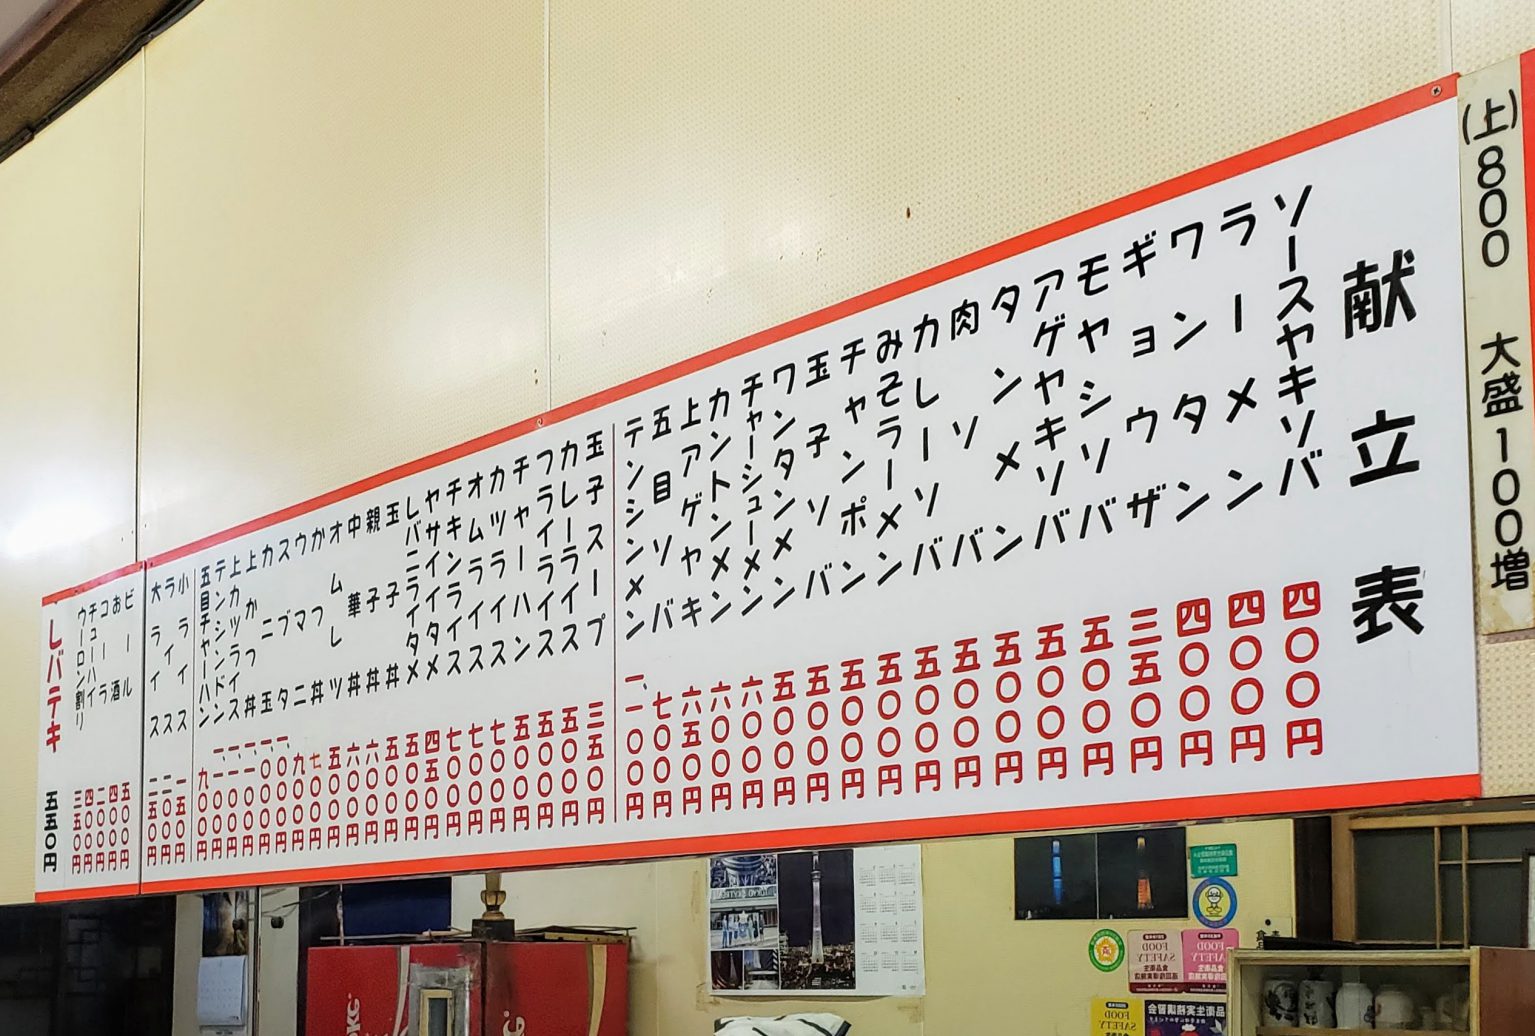 (上)800 大盛100増
献立表
ソースヤキソバ 四〇〇円
ラーメン 四〇〇円
ワンタン 四〇〇円
ギョウザ 三五〇円
モヤシソバ 五〇〇円
アゲヤキソバ 五〇〇円
タンメン 五〇〇円
肉ソバ 五〇〇円
カレーソバ 五〇〇円
みそラーメン 五〇〇円
チャンポン 五〇〇円
玉子ソバ 五〇〇円
ワンタンメン 五〇〇円
チャーシューメン 六〇〇円
カントンメン 六〇〇円
上アゲヤキ 六五〇円
五目ソバ 七〇〇円
テンシンメン 一、一〇〇円
玉子スープ 三五〇円
カレーライス 五〇〇円
フライライス 五〇〇円
チャーハン 五〇〇円
カツライス 七〇〇円
オムライス 七〇〇円
チキンライス 七〇〇円
ヤサイイタメ 四五〇円
レバニライタメ 五〇〇円
玉子丼 五〇〇円
親子丼 六〇〇円
中華丼 六〇〇円
オムレツ 五〇〇円
かつ丼 七〇〇円
ウマニ 九〇〇円
スブタ 一、〇〇〇円
カニ玉 一、〇〇〇円
上かつ丼 一、一〇〇円
上カツライス 一、一〇〇円
テンシンドン 一、一〇〇円
五目チャーハン 九〇〇円
小ライス 一五〇円
ライス 二〇〇円
大ライス 二五〇円
ビール 五〇〇円
お酒 四〇〇円
コーラ 二〇〇円
チューハイ 四〇〇円
ウーロン割り 三五〇円
レバテキ 五五〇円
FOOD
SAFETY
食品衛生
FOOD
SAFETY
食品衛生